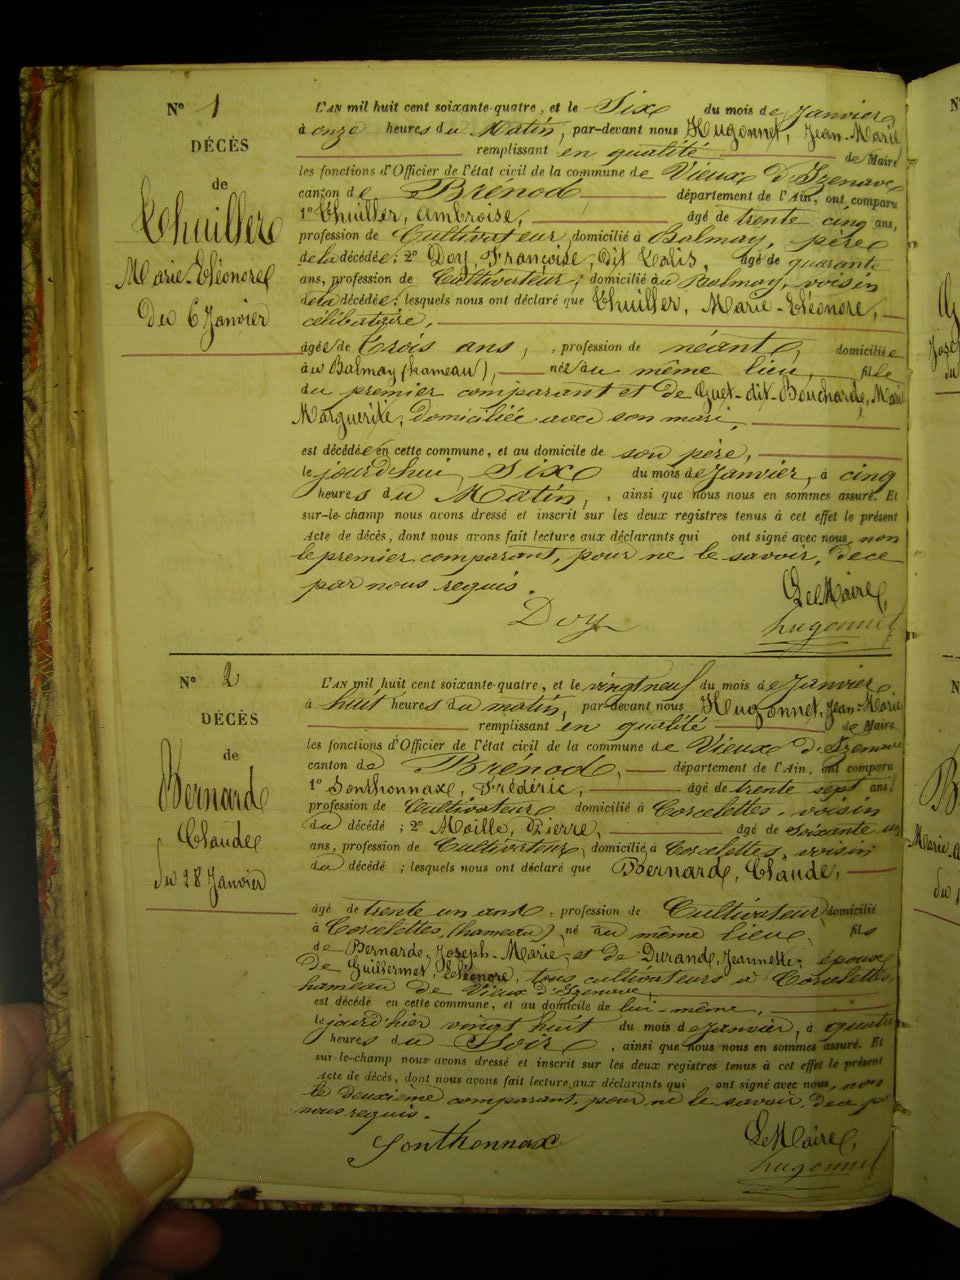 N° 1
DÉCÈS
de
Thuiller
Marie-Eléonore
Du 6 Janvier
L'AN mil huit cent soixante-quatre, et le Six du mois de Janvier
à onze heures du Matin, par-devant nous Hugonnet, Jean-Marie
remplissant en qualité de Maire
les fonctions d'Officier de l'état civil de la commune de Vieux d'Izenave
canton de Brénod département de l'Ain, ont comparu
1° Thuiller, Ambroise, âgé de trente cinq ans,
profession de Cultivateur domicilié à Balmay, père
de la décédée; 2° Doy, Françoise, dit Calis, âgé de quarante
ans, profession de Cultivateur; domicilié au Balmay, voisin
de la décédée; lesquels nous ont déclaré que Thuiller, Marie-Eléonore,
célibataire,
âgée de trois ans, profession de néant, domiciliée
au Balmay (hameau), née au même lieu, fille
du premier comparant et de Guet-dit-Bouchard, Marie
Marguerite, domiciliée avec son mari,
est décédée en cette commune, et au domicile de son père,
le jourd'hui Six du mois de Janvier, à cinq
heures du Matin, ainsi que nous nous en sommes assuré. Et
sur-le-champ nous avons dressé et inscrit sur les deux registres tenus à cet effet le présent
Acte de décès, dont nous avons fait lecture aux déclarants qui ont signé avec nous, non
le premier comparant, pour ne le savoir, de ce
par nous requis.
Le Maire,
Doy hugonnet
N° 2
DÉCÈS
de
Bernard
Claude
du 28 Janvier
L'AN mil huit cent soixante-quatre, et le vingt neuf du mois de Janvier
à huit heures du matin, par-devant nous Hugonnet, Jean-Marie
remplissant en qualité de Maire
les fonctions d'Officier de l'état civil de la commune de Vieux d'Izenave
canton de Brénod, département de l'Ain, ont comparu
1° Sonthonnax, Frédéric, âgé de trente sept ans,
profession de Cultivateur domicilié à Corcelettes, voisin
du décédé; 2° Maille, Pierre, âgé de soixante un
ans, profession de Cultivateur, domicilié à Corcelettes, voisin
du décédé; lesquels nous ont déclaré que Bernard, Claude,
âgé de trente un ans, profession de Cultivateur domicilié
à Corcelettes, (hameau) né au même lieu, fils
de Bernard, Joseph-Marie, et de Durand, Jeannette; époux
De Guillermet, Eléonore, tous cultivateurs à Corcelettes,
hameau de Vieux d'Izenave
est décédé en cette commune, et au domicile de lui-même,
le jourd'hier vingt huit du mois de Janvier, à quatre
heures du Soir, ainsi que nous nous en sommes assuré. Et
sur-le-champ nous avons dressé et inscrit sur les deux registres tenus à cet effet le présent
Acte de décès, dont nous avons fait lecture aux déclarants qui ont signé avec nous, non
le deuxième comparant, pour ne le savoir, de ce p
nous requis.
Le Maire,
Sonthonnax hugonnet